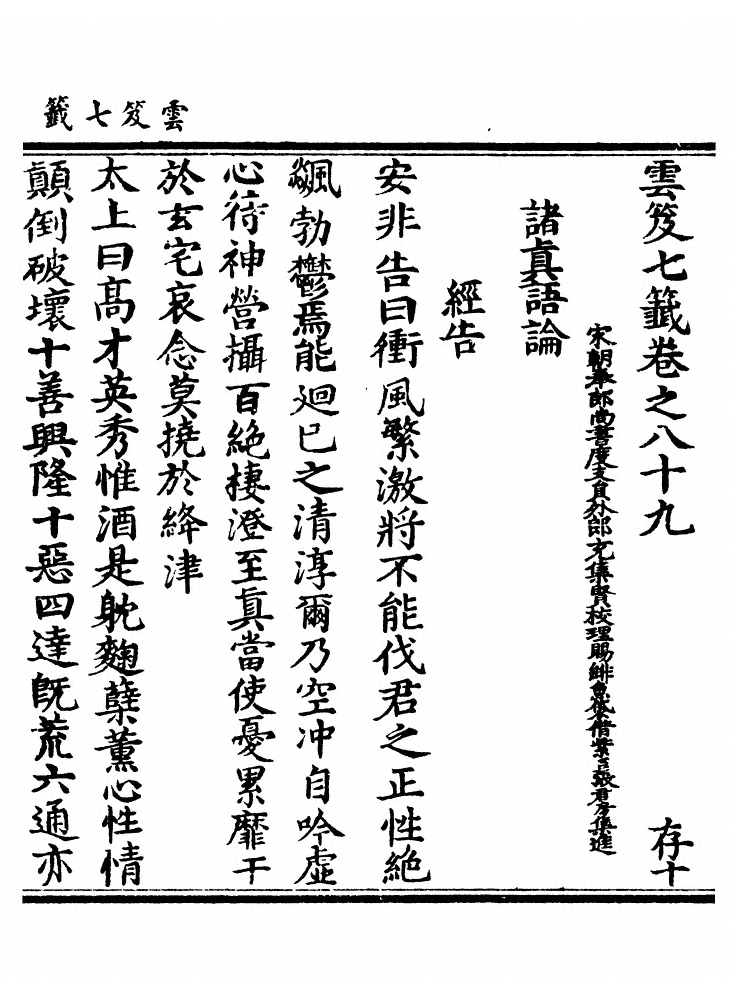 雲笈七籤
雲笈七籤卷之八十九 存十
宋朝奉郎尚書度支員外郎充集賢校理賜緋魚袋借紫臣張君房集進
諸真語論
經告
安非告曰衝風繁激將不能伐君之正性絶
飆勃鬱焉能迴己之清淳爾乃空冲自吟虛
心待神營攝百絶棲澄至真當使憂累靡干
於玄宅哀念莫撓於絳津
太上曰高才英秀惟酒是躭麴蘖薰心性情
顛倒破壞十善興隆十惡四達旣荒六通亦